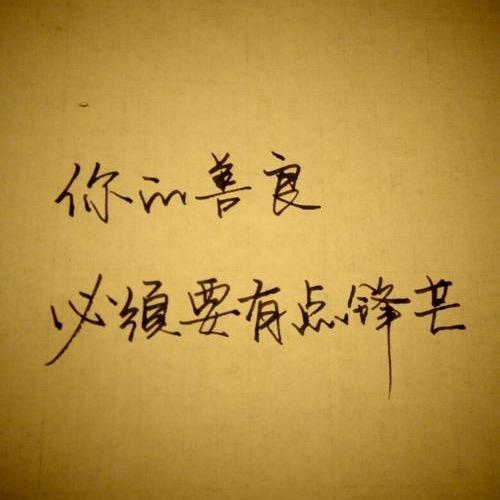 你的善良
必須要有点锋芒